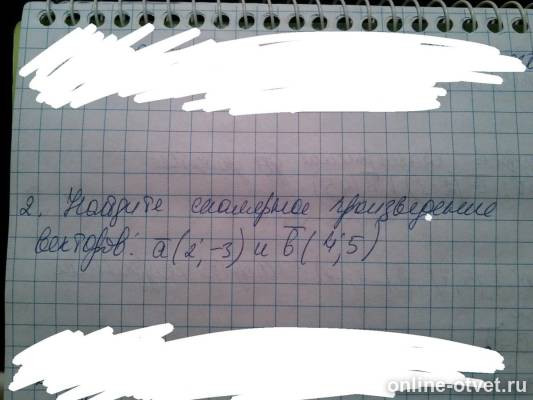 2. Найдите скалярное произведение
векторов: a̅ (2; -3) и b̅ (4; 5)
online-otvet.ru